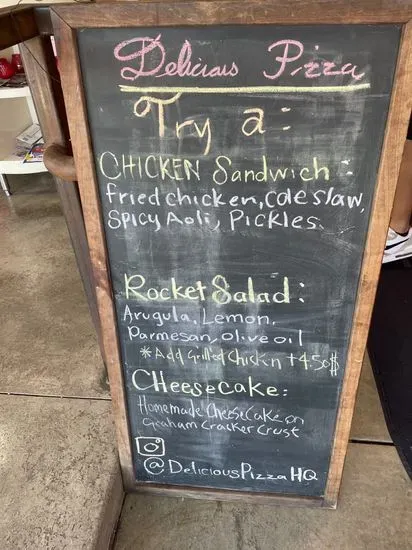 Delicious Pizza
Try a:
CHICKEN Sandwich:
fried chicken, coleslaw,
Spicy Aoli, Pickles
Rocket Salad:
Arugula, Lemon,
Parmesan, Olive oil
*Add Grilled Chicken +4.50$
CHeeseCake:
Homemade CheeseCake on
Graham Cracker Crust
@DeliciousPizzaHQ